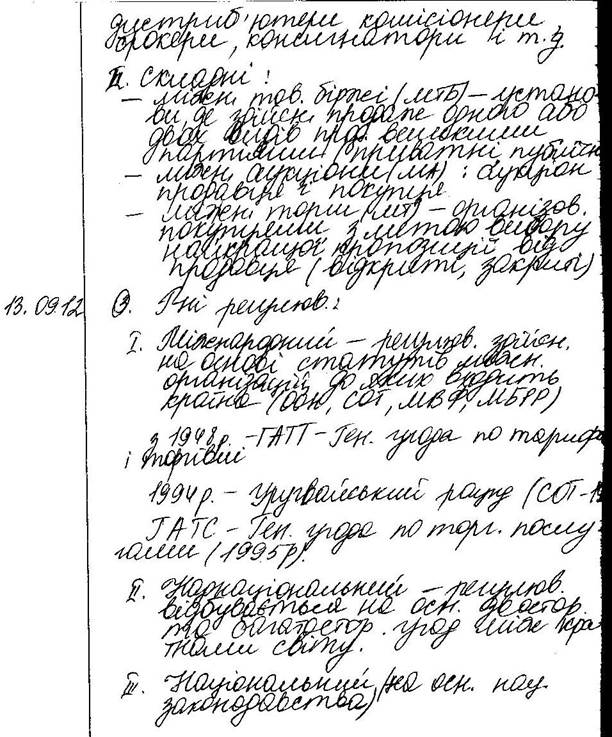 дистриб'ютери комісіонери,
брокери, консигнатори і т.д.
II. складні:
– міжн. тов. біржі (МТБ) – устано-
ви, де здійсн. продаж одного або
двох видів прод. великими
партіями (приватні, публічн
– міжн. аукціони (МА): аукціон
продавця і покупця
– міжн. торги (МТ) – організов.
покупцями з метою вибору
найкращої пропозиції від
продавця (відкриті, закриті)
13.09.12 3. Рні регулюв.:
I. Міжнародний – регулюв. здійсн.
на основі статутів міжн.
організацій, до яких входить
країна (ООН, СОТ, МВФ, МБРР)
з 1948р. – ГАТТ – Ген. угода по тариф
і торгівлі
1994р. – Уругвайський раунд (СОТ-19
ГАТС – Ген. угода по торг. послу-
гами (1995р).
II. Наднаціональний – регулюв.
відбувається на осн. двостор.
та багатостор. угод між кра
їнами світу.
III. Національний (на осн. нац.
законодавства)